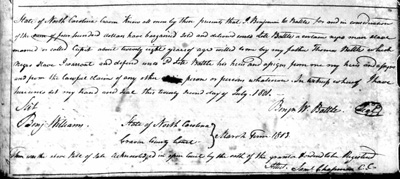 State of North Carolina Know them all men by these presents that I Benjamin W Battle for and in consideration
of the sum of four hundred dollars have bargained sold and delivered unto Battle a certain negro man slave
named or called Cupit about twenty eight years of age willed unto me by my father Thomas Battle which
Negro Slave I warrant and defend unto said Battle his heirs and assigns from me my heirs and assigns
and from the lawful claims of any other person or persons whatsoever. In witness whereof I have
hereunto set my hand and seal this twenty second day of July 1801.
Test
Benja W Battle
Benj. Williams
State of North Carolina
Craven County Court
March Term 1803
Then was the above Bill of sale acknowledged in open Court by the oath of the grantor Ordered to be Registered
Attest. Saml Chapman C.C.